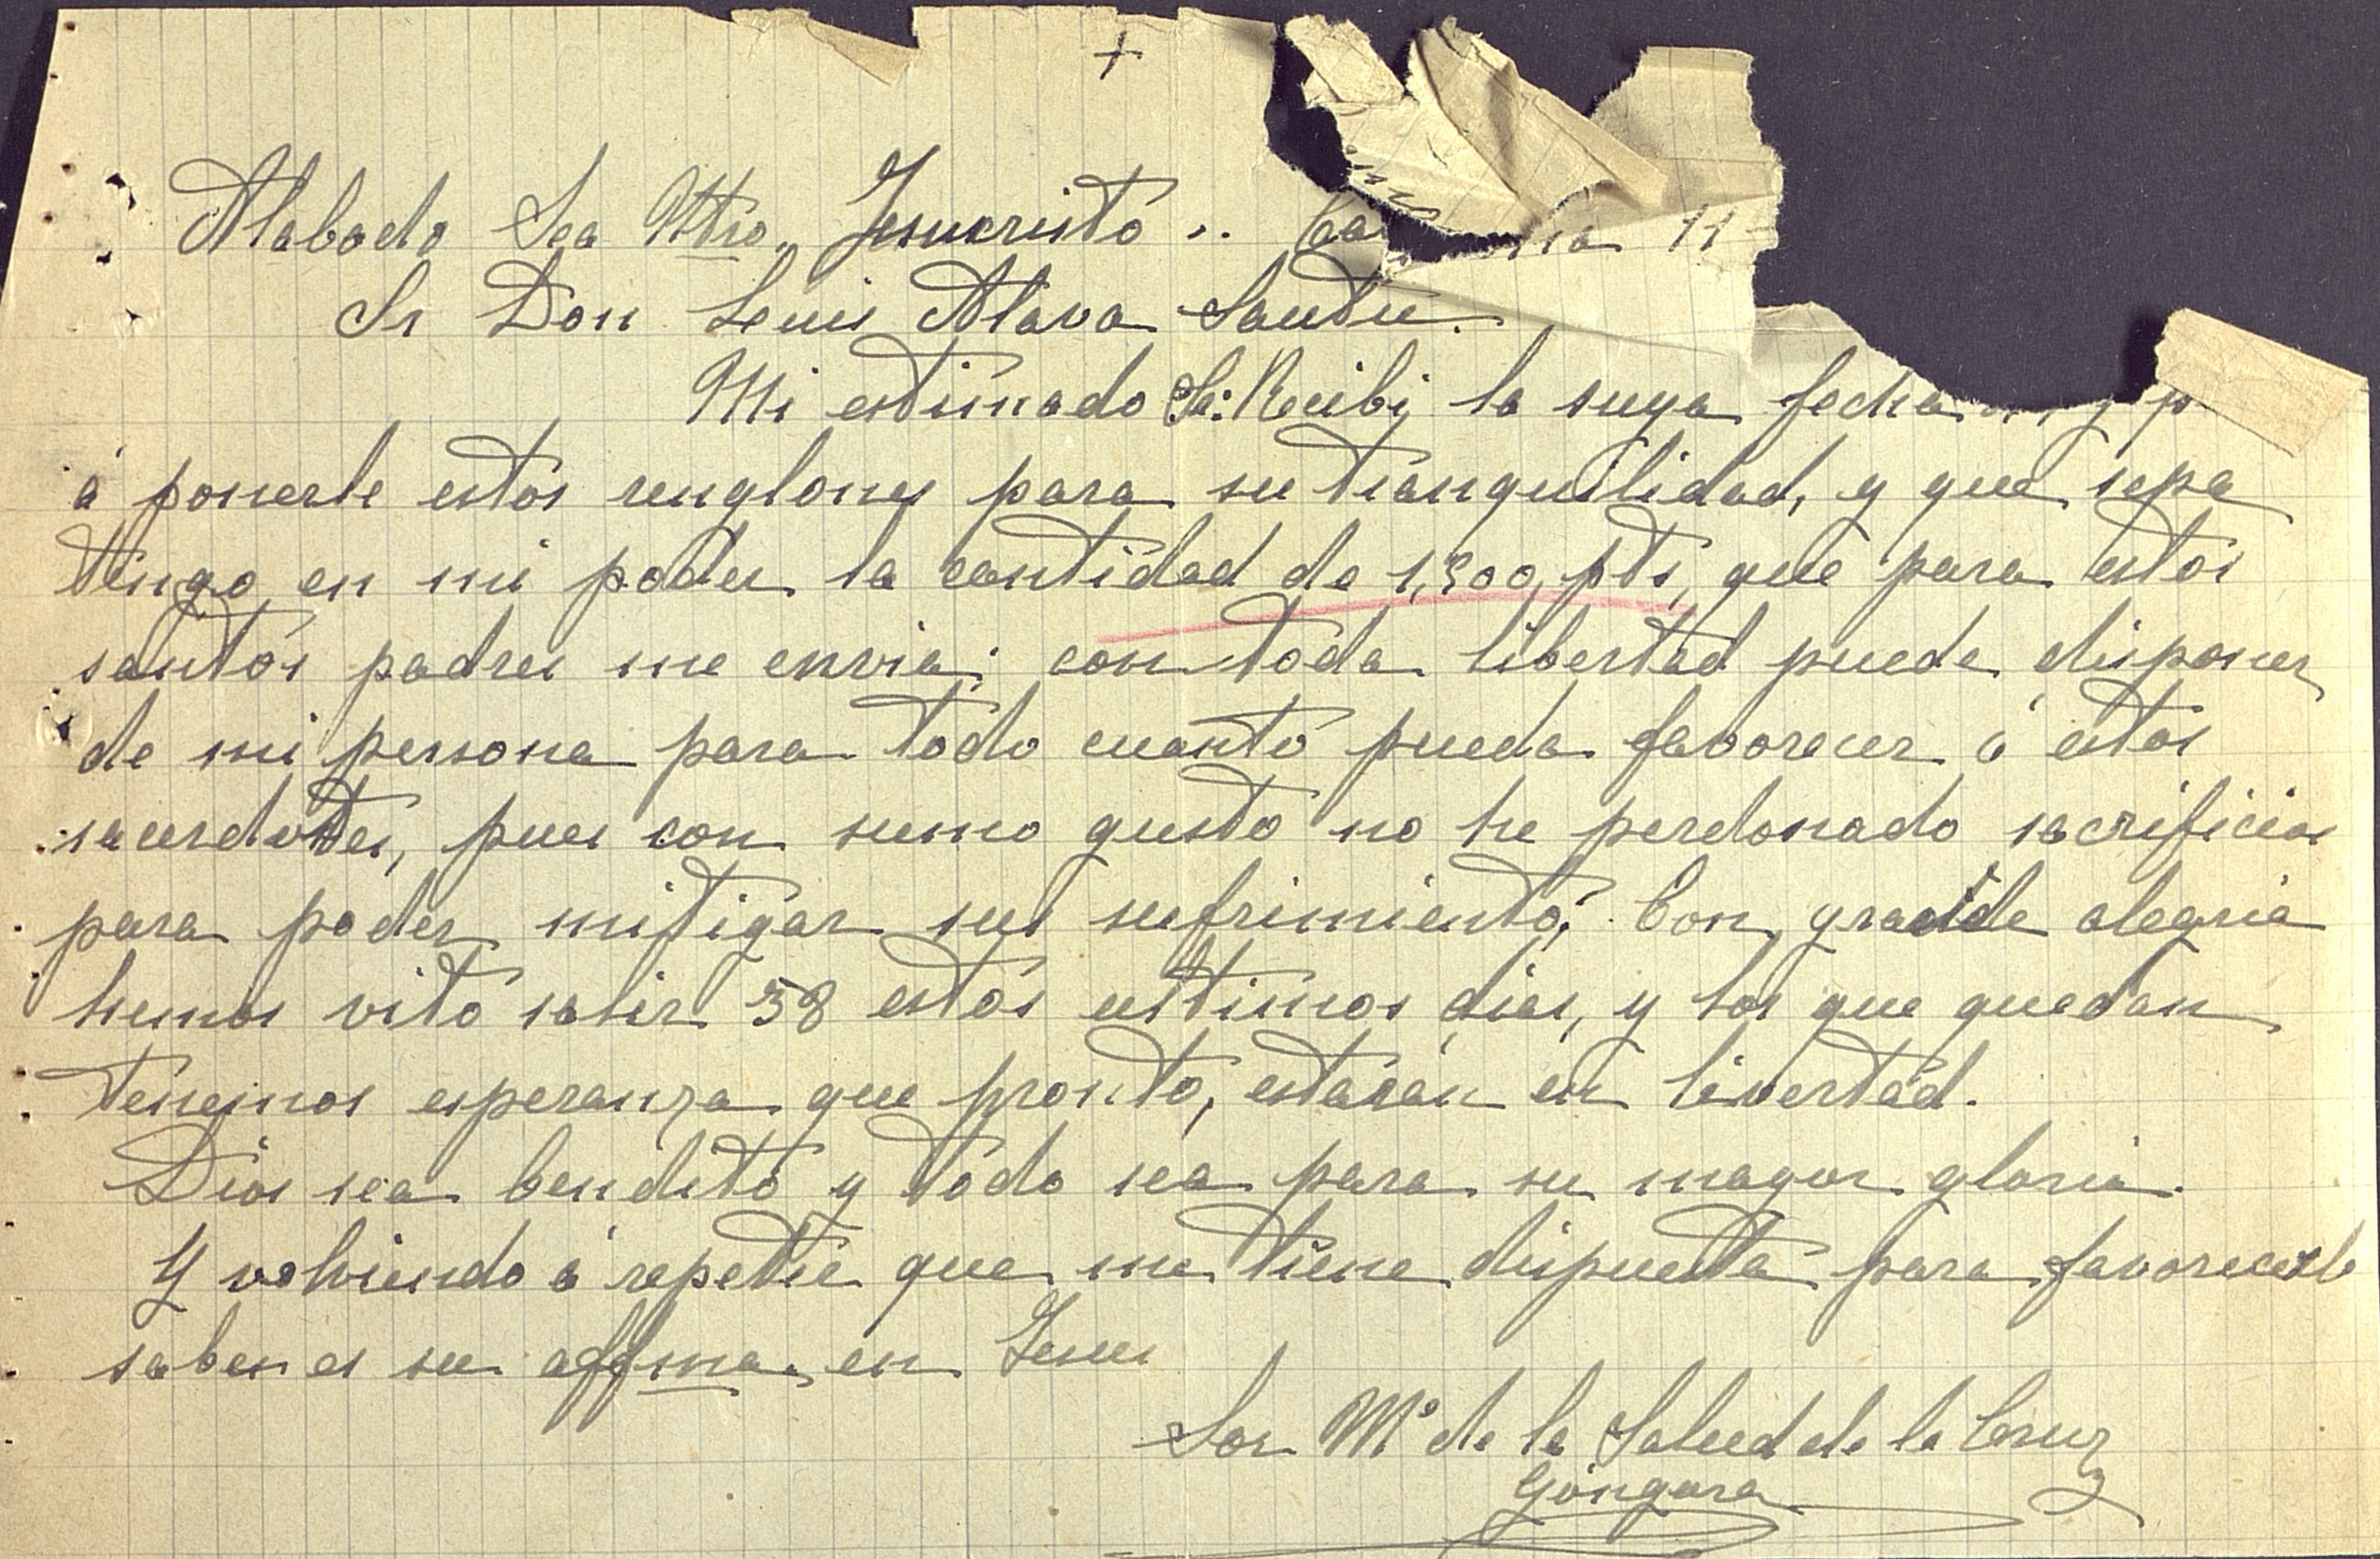 +
Alabado Sea Ntro, Jesucristo .. 11
Sr Don Luis Alava Sautu.
Mi estimado Sr: Recibi la suya fecha
á ponerle estos renglones para su tranquilidad, y que sepa
tengo en mi poder la cantidad de 1,300, pts, que para estos
santos padres me envia; con toda libertad puede disponer
de mi persona para todo cuanto pueda favorecer á estos
sacerdotes, pues con sumo gusto no he perdonado sacrificios
para poder mitigar sus sufrimientos; Con, grande alegria
hemos vito salir 58 estos ultimos dias, y los que quedan
tenemos esperanza que pronto, estarán en livertad.
Dios sea bendito y todo sea para su mayor gloria.
Y volviendo á repetir que me tiene dispuesta para favorecerle
saben es su affma. en Jesus
Sor Mª de la Salud de la Cruz
Góngora